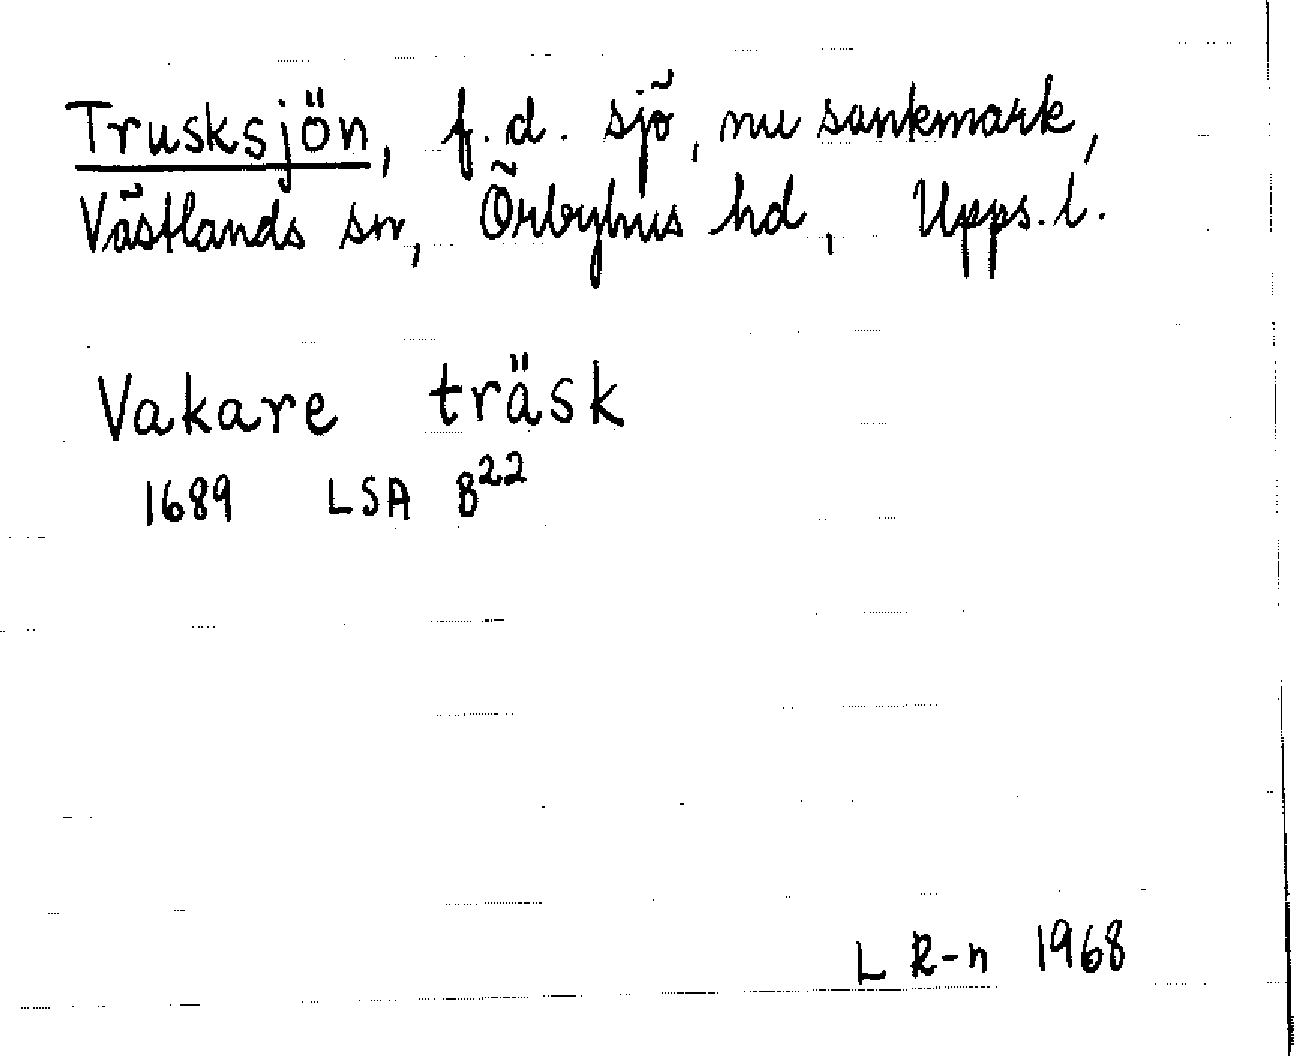 Trusksjön, f.d. sjö, nu sankmark,
Västlands sn, Örbyhus hd, Upps. l.
Vakare träsk
1689 LSA B²²
L R-n 1968